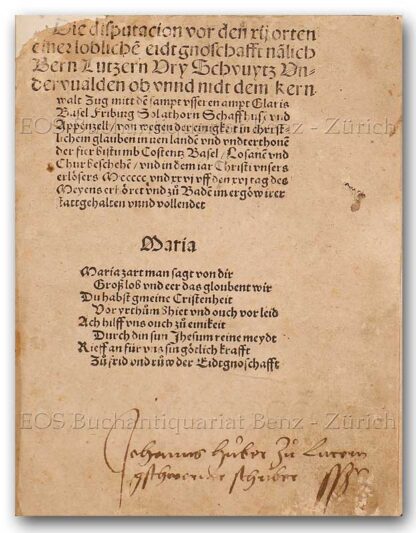 Die disputacion vor den xij orten
einer loblichē eidtgnoschafft nālich
Bern Lutzern Vry Schvuytz Vn-
dervualden ob vnnd nidt dem kern
walt Zug mitt dē sampt vsseren ampt Glaris
Basel Friburg Solathorn Schaffhusē vnd
Appenzell / von wegen der einigkeit in christ-
lichem glauben in iren landē vnd vnderthonē
der fier bistumb Costentz Basel / Losanē vnd
Churbeschehē / vnd in dem iar Christi vnsers
erlösers Mccccc vnd xxvi vff den xvi tag des
Meyens erhöret vnd zů Baden im ergöw irer
stattgehalten vnnd vollendet
Maria
Maria zart man sagt von dir
Groß lob vnd eer das gloubent wir
Du habst gmeine Cristenheit
Vor yrthům bhiet vnd ouch vor leid
Ach hilff vns ouch zů einikeit
Durch din sun Jhesum reine meydt
Rieff an für vnz sin götlich krafft
Zů frid vnd růw der Eidtgnoschafft
EOS Buchantiquariat Benz - Zürich
EOS Buchantiquariat Benz - Zürich
Johannes hůber zů Lucern
gschworner schriber